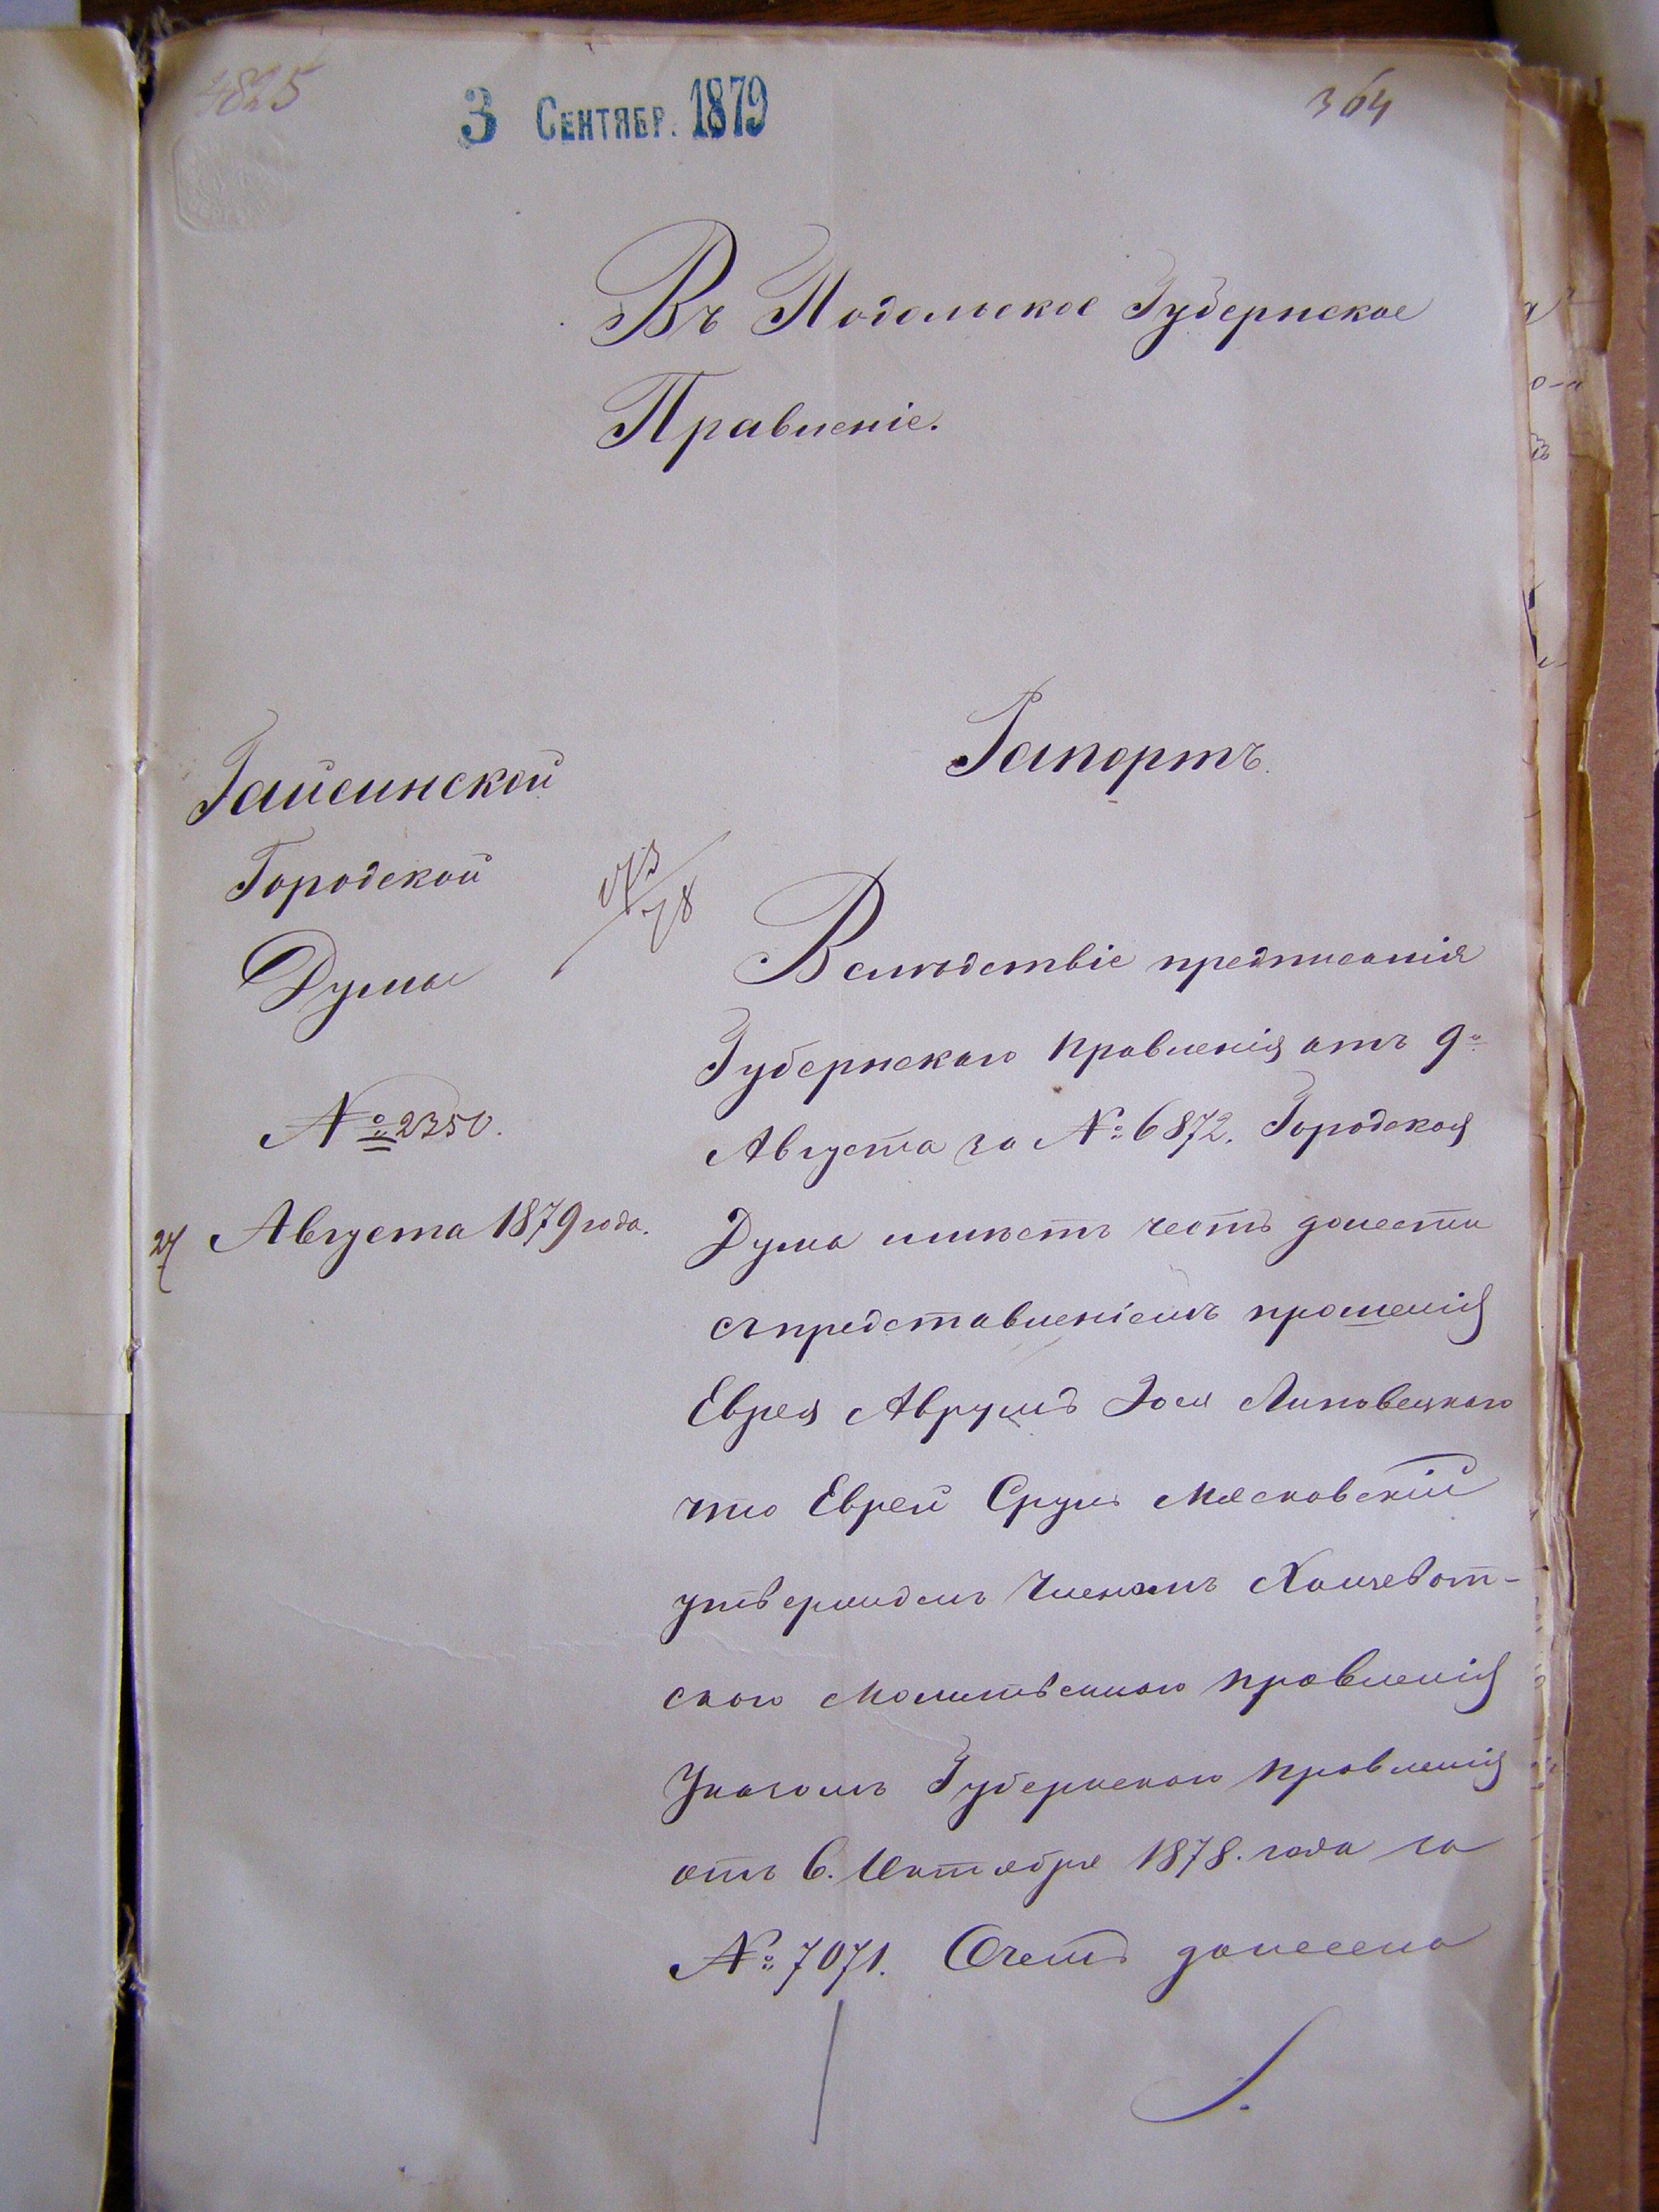 4825
3 СЕНТЯБР. 1879
364
Въ Подольское Губернское
Правленіе.
Рапортъ.
Гайсинской
Городской
Думы
№ 2350.
27 Августа 1879 года.
Вслѣдствіе предписанія
Губернскаго Правленія отъ 9º
Августа за № 6872. Городская
Дума имѣетъ честь донести
съ представленіемъ прошенія
Еврея Аврумъ Іося Липовецкаго
что Еврей Сруль Мясковскій
утвержденъ Членомъ Хащеват-
скаго Молитвеннаго Правленія
Указомъ Губернскаго Правленія
отъ 6. Октября 1878. года за
№ 7071. О чемъ донесено